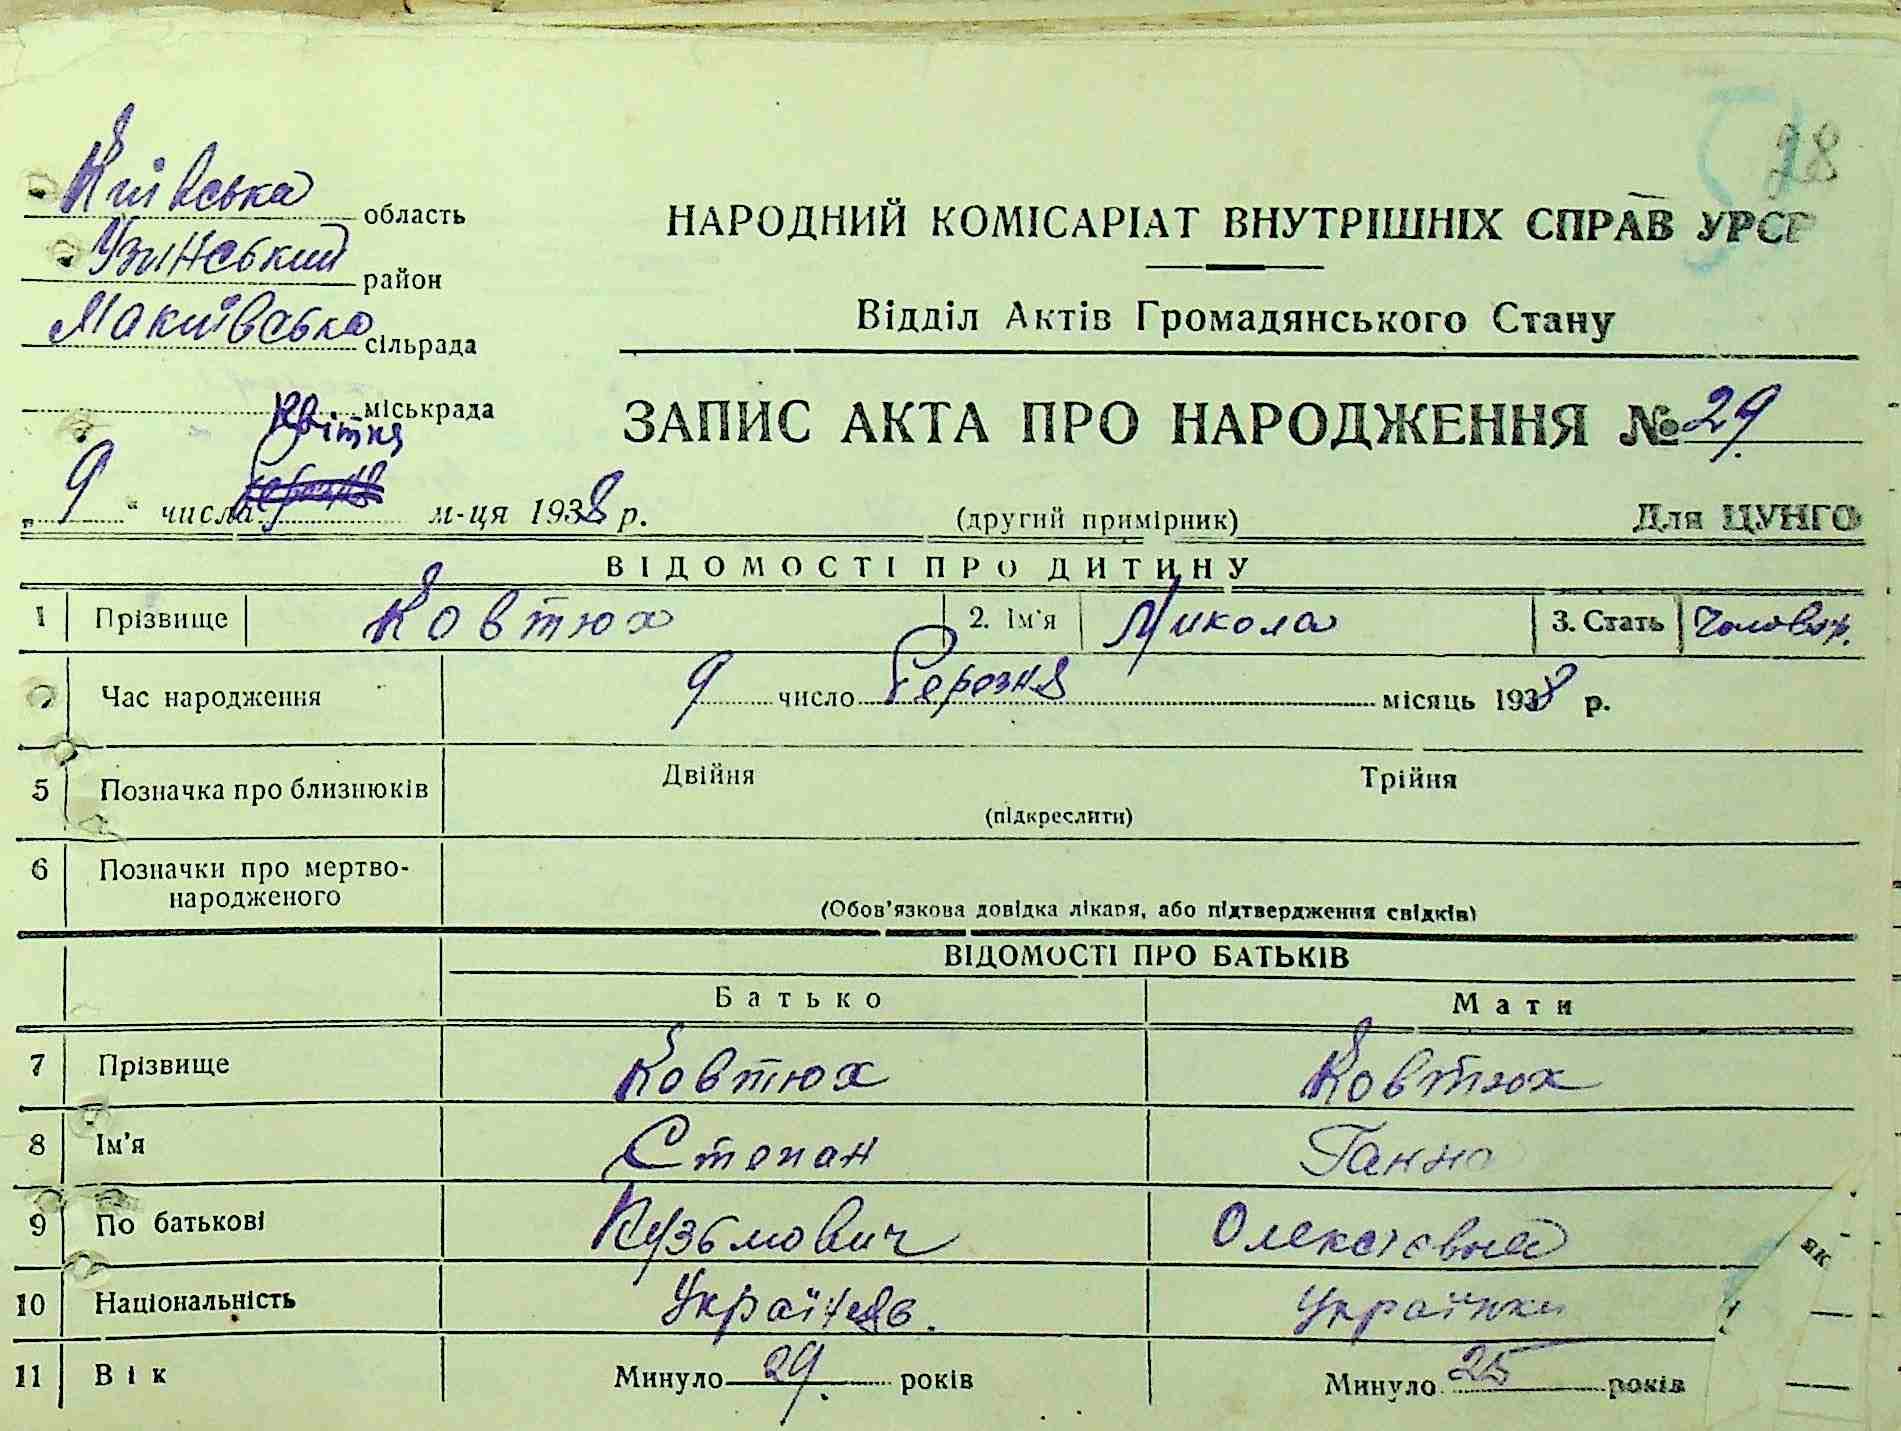 28
Київська область
Узинський район
Макиївська сільрада
міськрада
НАРОДНИЙ КОМІСАРІАТ ВНУТРІШНІХ СПРАВ УРСР
Відділ Актів Громадянського Стану
ЗАПИС АКТА ПРО НАРОДЖЕННЯ № 29.
квітня
„ 9 “ числа березня м-ця 1938 р.
(другий примірник)
Для ЦУНГО
ВІДОМОСТІ ПРО ДИТИНУ
1 Прізвище Ковтюх 2. Ім'я Микола 3. Стать Чоловіч.
Час народження 9 число Березня місяць 1938 р.
5 Позначка про близнюків Двійня Трійня
(підкреслити)
6 Позначки про мертво-
народженого
(Обов'язкова довідка лікаря, або підтвердження свідків)
ВІДОМОСТІ ПРО БАТЬКІВ
Батько Мати
7 Прізвище Ковтюх Ковтюх
8 Ім'я Степан Ганна
9 По батькові Кузьмович Олексіевна
як
10 Національність Українець. Українка
11 Вік Минуло 29. років Минуло 25 років